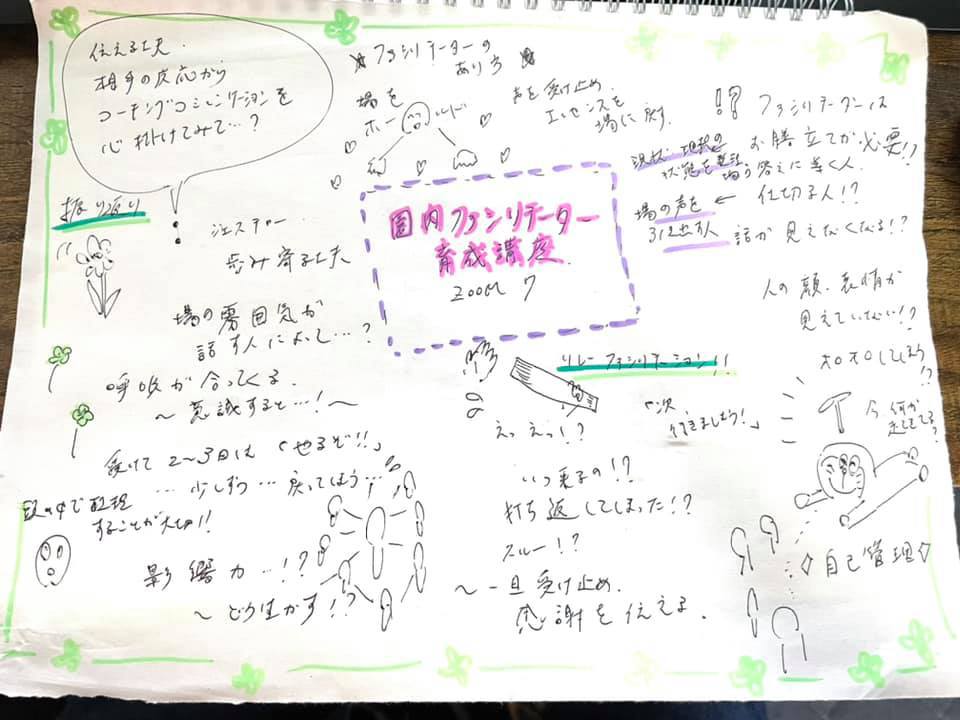 伝える工夫.
相手の反応から
コーチングコミニケーションを
心掛けてみて…?
振り返り
ジェスチャー
歩み寄る工夫
場の雰囲気が
話す人によって…?
呼吸が合ってくる.
～意識すると…!～
受けて2～3日は「やるぞ!!」
…少しずつ…戻ってしまう…
頭の中で整理
することが大切!!
影響力…!?
～どう生かす!?
ファシリテーターの
あり方
場を
ホールド
声を受け止め
エッセンスを
場に戻す.
圏内ファシリテーター
育成講座.
ZOOM 7
!? ファシリテーターは
お膳立てが必要!?
現状・現状の
状態を
場う答えに導く人.
場の声を ← 仕切る人!?
引き出す人
話が見えなくなる!?
人の顔、表情が
見えていない!?
オロオロしてしまう
!?
今、何が
起きてる?
リレーファシリテーション!!
「次
行きましょう!」
えっえっ!?
いつ来るの!?
打ち返してしまった!?
スルー!?
～一旦受け止め.
感謝を伝える.
◇自己管理◇